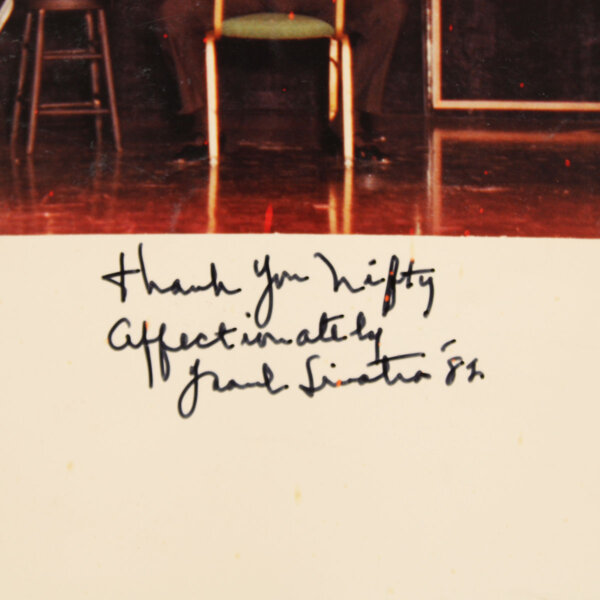 Thank You Nifty
Affectionately
Frank Sinatra '82